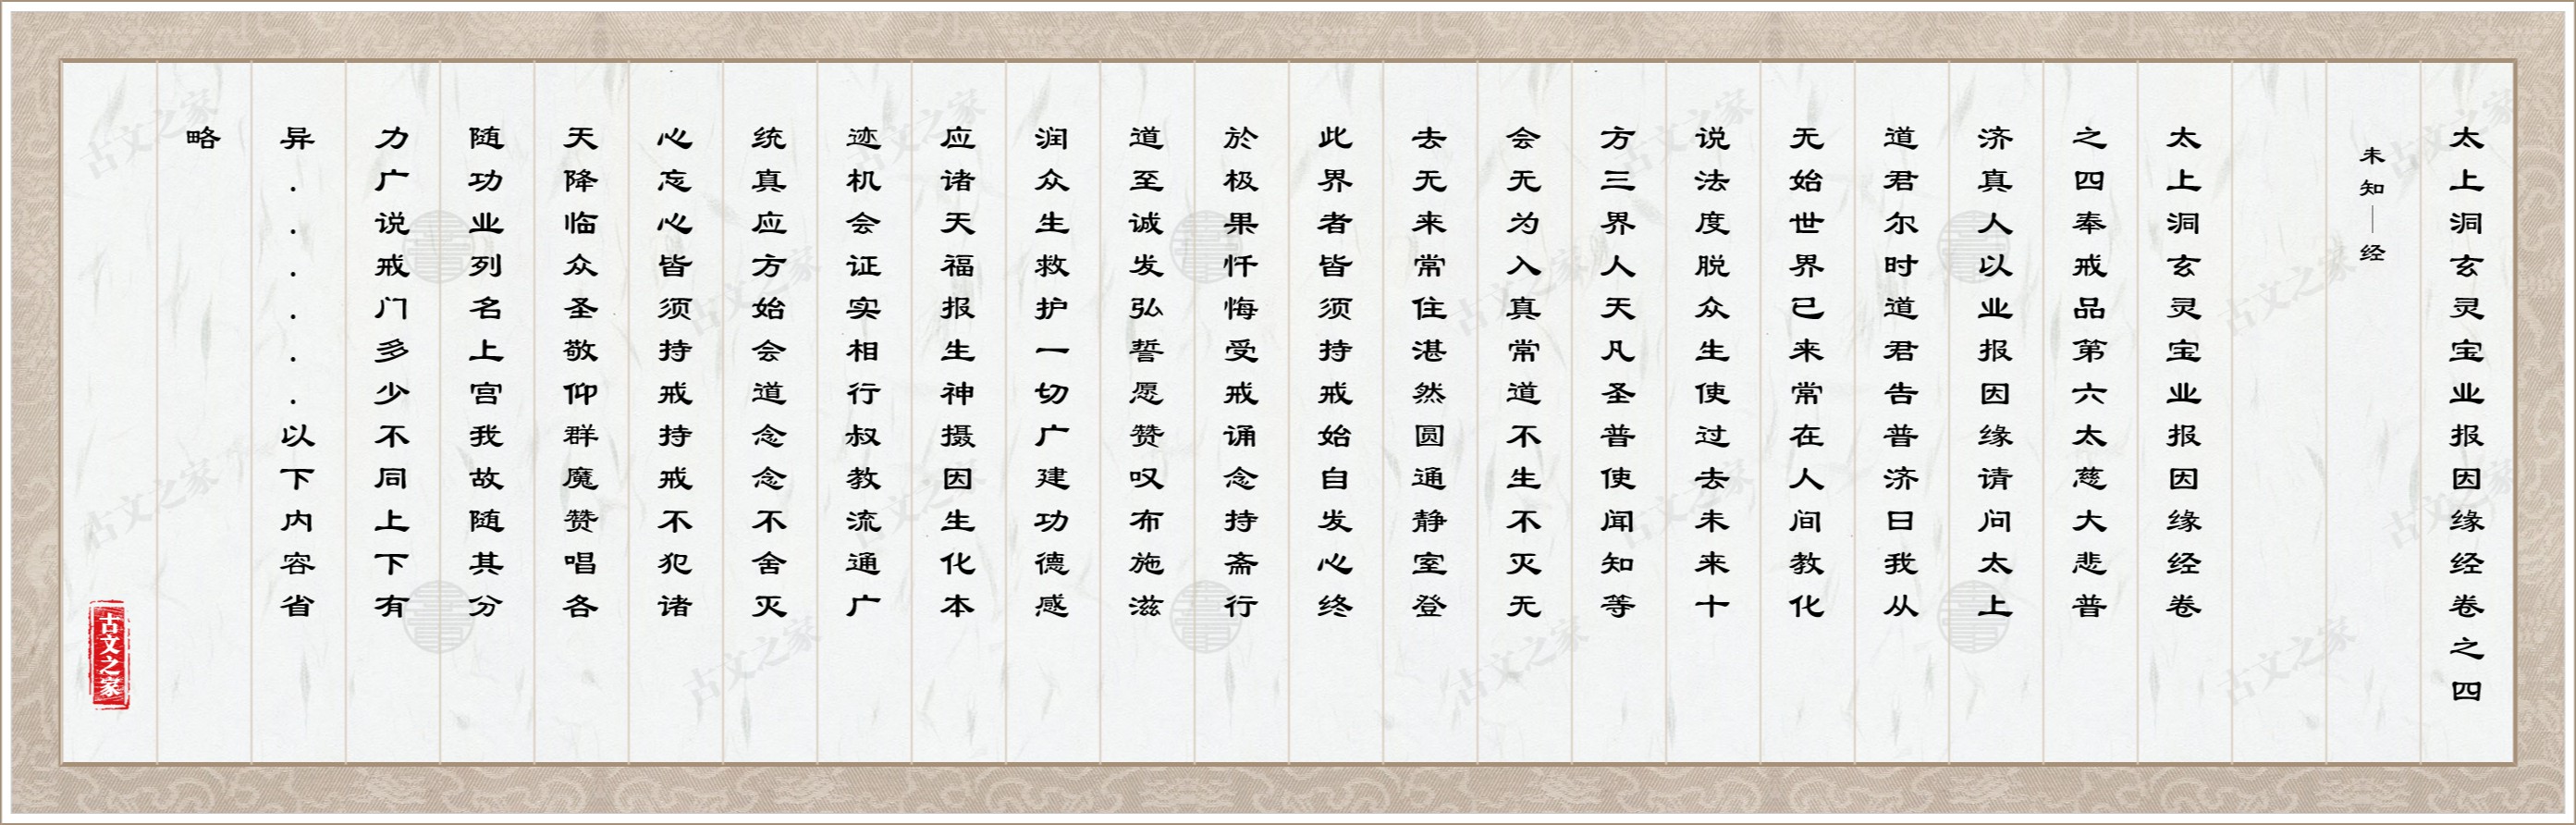 太上洞玄灵宝业报因缘经卷之四
未知—经
太上洞玄灵宝业报因缘经卷
之四奉戒品第六太慈大悲普
济真人以业报因缘请问太上
道君尔时道君告普济曰我从
无始世界已来常在人间教化
说法度脱众生使过去未来十
方三界人天凡圣普使闻知等
会无为入真常道不生不灭无
去无来常住湛然圆通静室登
此界者皆须持戒始自发心终
於极果忏悔受戒诵念持斋行
道至诚发弘誓愿赞叹布施滋
润众生救护一切广建功德感
应诸天福报生神摄因生化本
迹机会证实相行叔教流通广
统真应方始会道念念不舍灭
心忘心皆须持戒持戒不犯诸
天降临众圣敬仰群魔赞唱各
随功业列名上宫我故随其分
力广说戒门多少不同上下有
异......以下内容省
略
古文之家